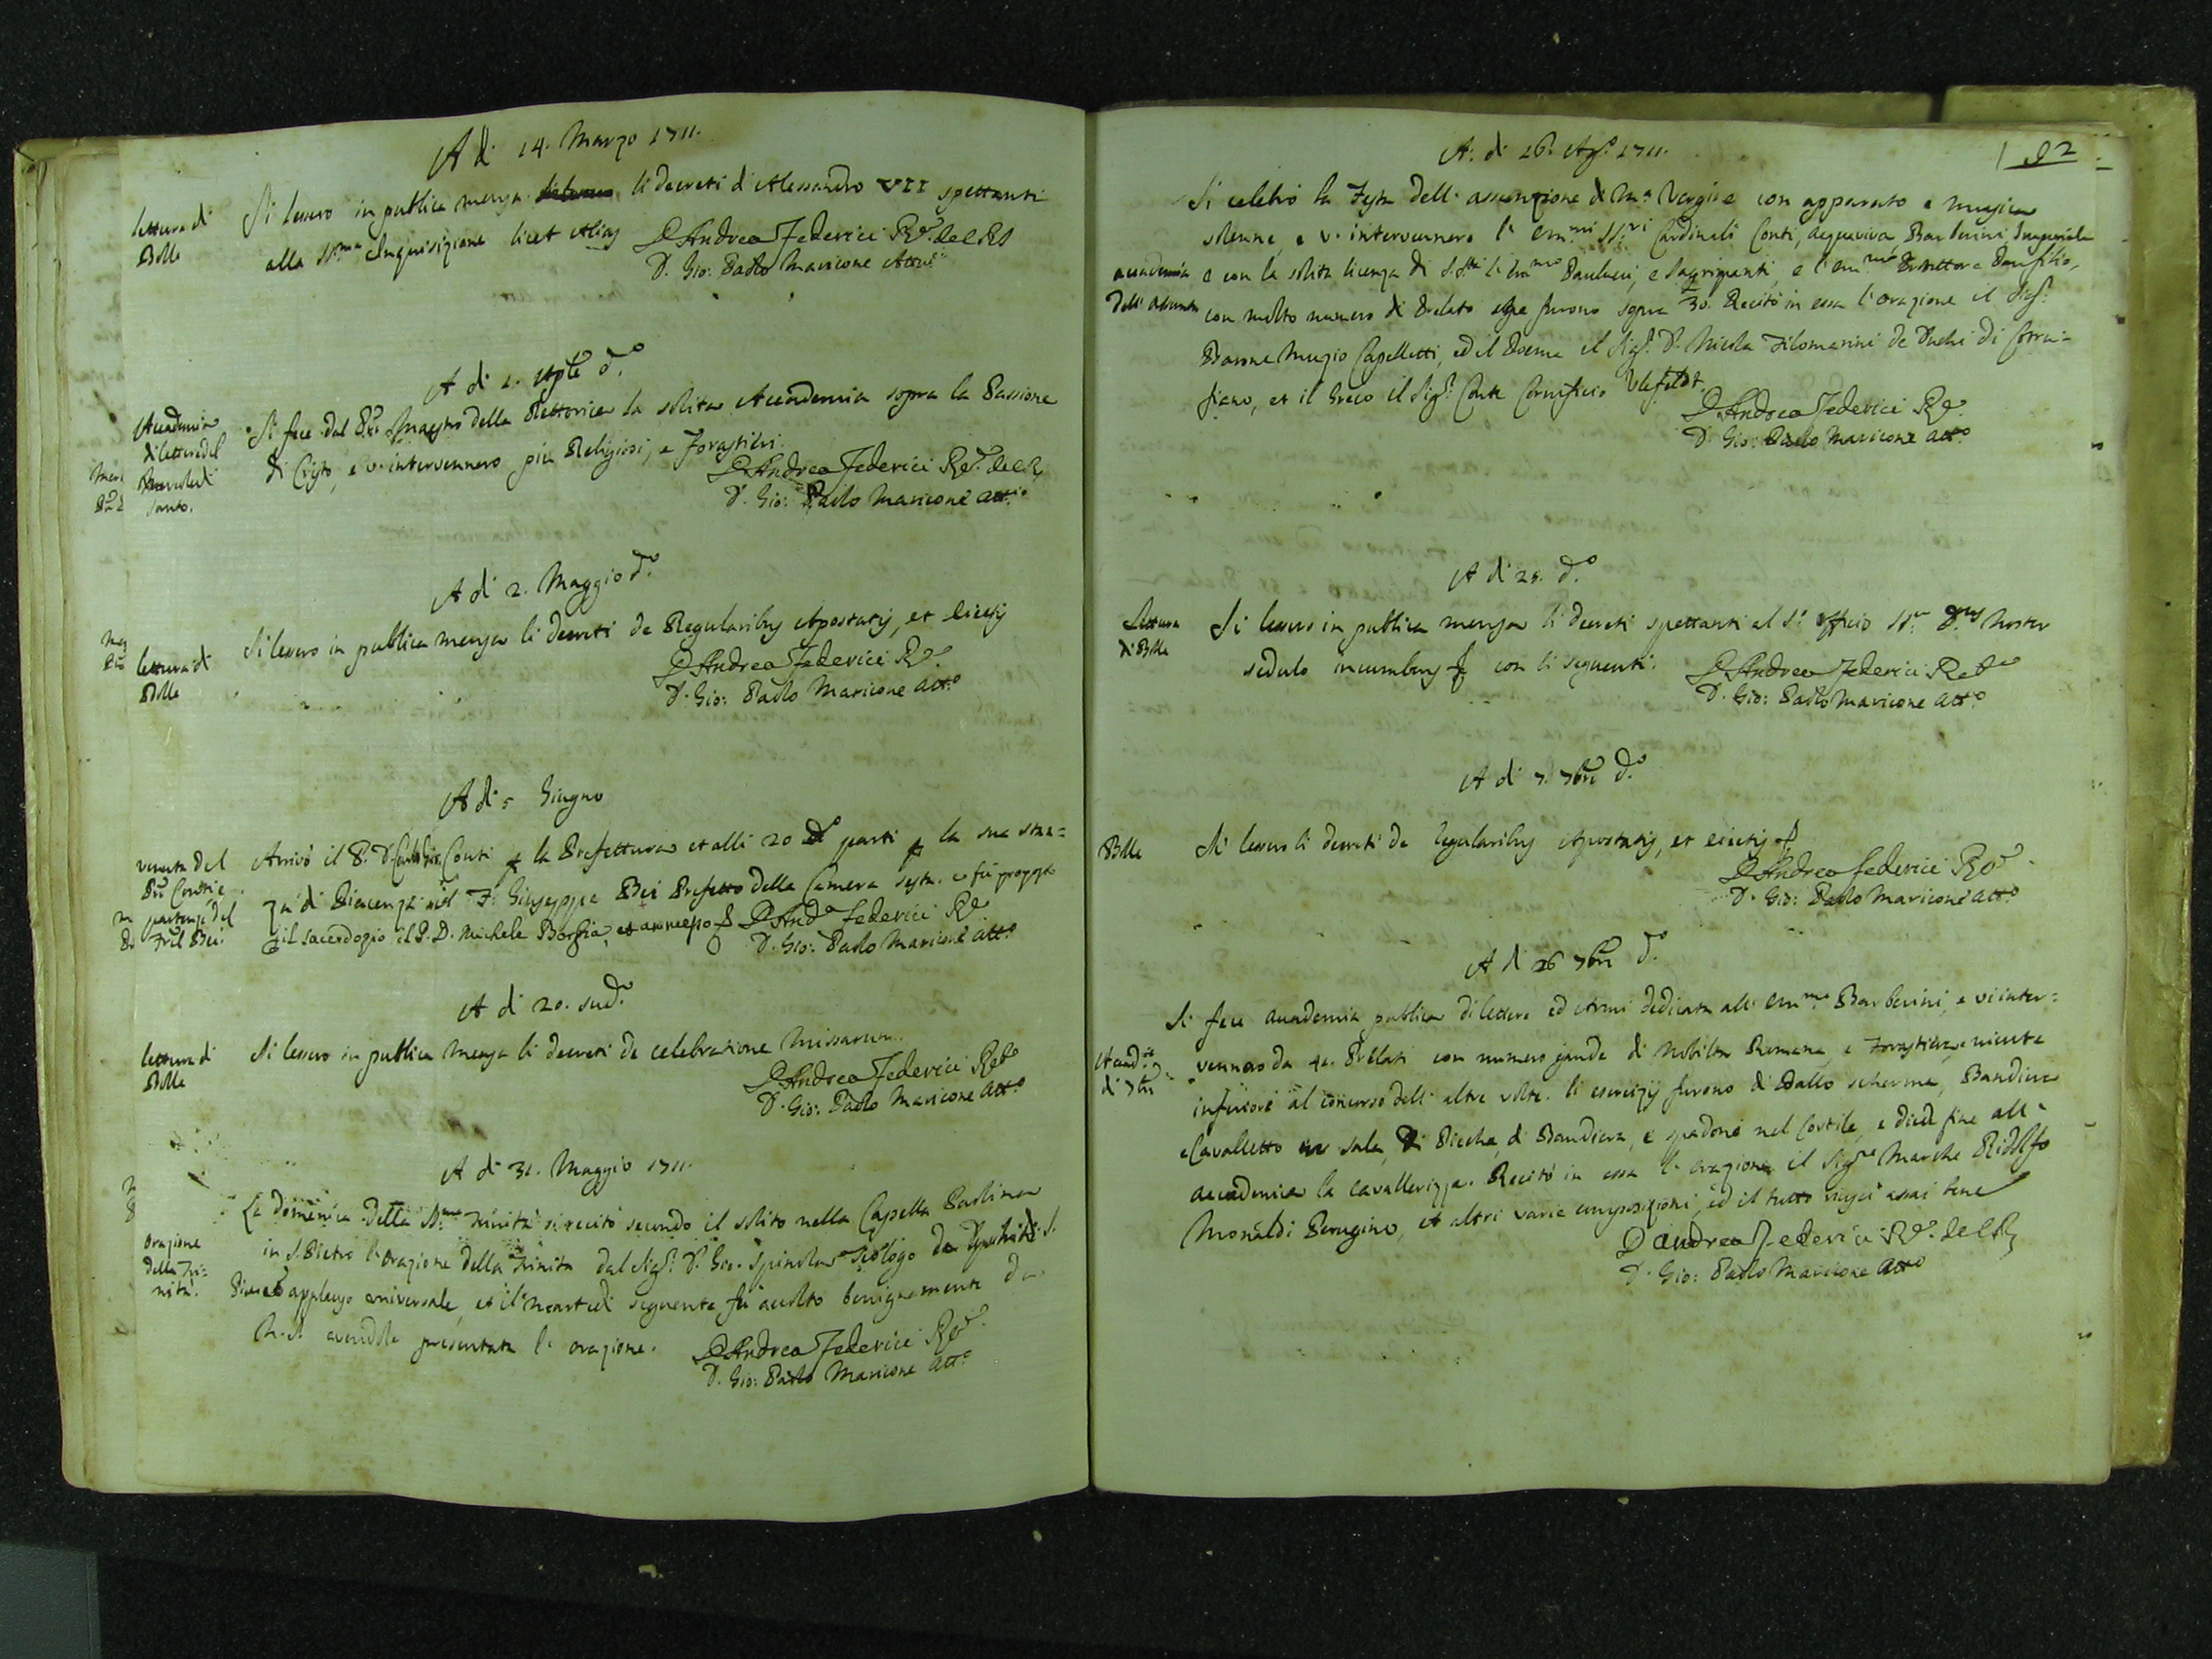 A di 14. Marzo 1711.
lettura di
Bolle
Si lessero in publica mensa li decreti d'Alessandro VII spettanti
alla SS.ma Inquisizione licet Alias D Andrea Federici Re. del R
D. Gio: Paolo Maricone Att.o
A di 1. Aple d.o
Academia
di lettere del
Mercoledi
Santo.
Si fece dal P. Maestro della Rettorica la solita Accademia sopra la Passione
di Cristo, e v'intervennero più Religiosi, e Forastieri.
D Andrea Federici Re. del R
D. Gio: Paolo Maricone att.o
A di 2. Maggio d.o
lettura di
Bolle
Si lessero in publica mensa li decreti de Regularibus Apostatis, et eiectis
D Andrea Federici Re.
D. Gio: Paolo Maricone att.o
A di 5 Giugno
venuta del
P. Conti e
partenza del
Frel Bei.
Arrivò il P. D. Carlo Gio. Conti p la Prefettura et alli 20 d. parti p la sua stan=
za di Piacenza il F. Giuseppe Bei Prefetto della Camera sesta. e fù proposto
p il sacerdozio il P. D. Michele Borgia, et ammesso D And.a Federici Re
D. Gio: Paolo Maricone att.o
A di 20. sud.o
lettura di
Bolle
Si lessero in publica mensa li decreti de celebratione Missarum.
D Andrea Federici Ret.e
D. Gio: Paolo Maricone att.o
A di 31. Maggio 1711.
orazione
della Tri=
nità.
La domenica della SS.ma Trinità si recitò secondo il solito nella Capella Paolina
in S. Pietro l'orazione della Trinità dal Sig.r D. Gio. Spinola Teologo
applauso universale, et il martedi seguente fù accolto benignamente da
N. S. avendole presentata l'orazione. D Andrea Federici Re.
D. Gio: Paolo Maricone att.o
192
A di 16. Ag.o 1711.
academia
dell' Assunta
Si celebrò la Festa dell' assunzione di M.a Vergine con apparato e musica
solenne, e v'intervennero l'Em.mi SS.ri Cardinali Conti, Acquaviva, Barberini, Imperiale
e con la solita licenza di S. S.tà li Em.mi Paulucci, e Sagripanti, e l'Em.mo Protettore Panfilio,
con molto numero di Prelati che furono sopra 30. Recitò in essa l'orazione il Sig.r
Barone Muzio Capelletti, ed il Poema il Sig.r D. Nicola Filomarini de Duchi di
et il Greco il Sig.r Conte Cornificio Ulefeldt.
D Andrea Federici Re.
D. Gio: Paolo Maricone att.o
A di 25. d.o
Lettura
di Bolle
Si lessero in publica mensa li decreti spettanti al S. Officio SS. D.nus Noster
sedulo incumbens con li seguenti. D Andrea Federici Ret.e
D. Gio: Paolo Maricone att.o
A di 7. 7bre d.o
Bolle
Si lessero li decreti de regularibus Apostatis, et eiectis
D Andrea Federici Re.
D. Gio: Paolo Maricone att.o
A di 26 7bre d.o
Acad.a
di 7bre
Si fece academia publica di lettere ed Armi dedicata all' Em.mo Barberini, e vi inter=
vennero da 40. Prelati con numero grande di Nobiltà Romana, e Forastiera niente
inferiore al concorso dell' altre volte. li esercizij furono di Ballo scherma, Bandiera
e Cavalletto in sala, di Picche, di Bandiera, e spadone nel Cortile, e diede fine all'
accademia la cavallerizza. Recitò in essa l'orazione il Sig.re Marche Ridolfo
Monaldi Perugino, et altri varie composizioni, ed il tutto riuscì assai bene
D Andrea Federici Re. del R
D. Gio: Paolo Maricone att.o